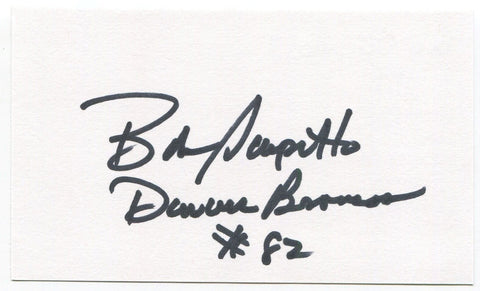 Bob Scarpitto
Denver Broncos
#82